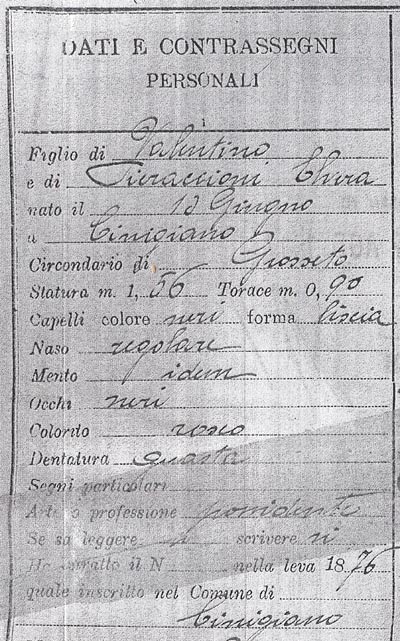 DATI E CONTRASSEGNI
PERSONALI
Figlio di Valentino
e di Pieraccioni
nato il Giugno
a Cinigiano
Circondario di Grosseto
Statura m. 1, 56 Torace m. 0, 90
Capelli colore neri forma liscia
Naso regolare
Mento idem
Occhi neri
Colorito roseo
Dentatura guasta
Segni particolari
Arte o professione possidente
Se sa leggere si scrivere si
Ha estratto il N nella leva 1876
quale inscritto nel Comune di
Cinigiano